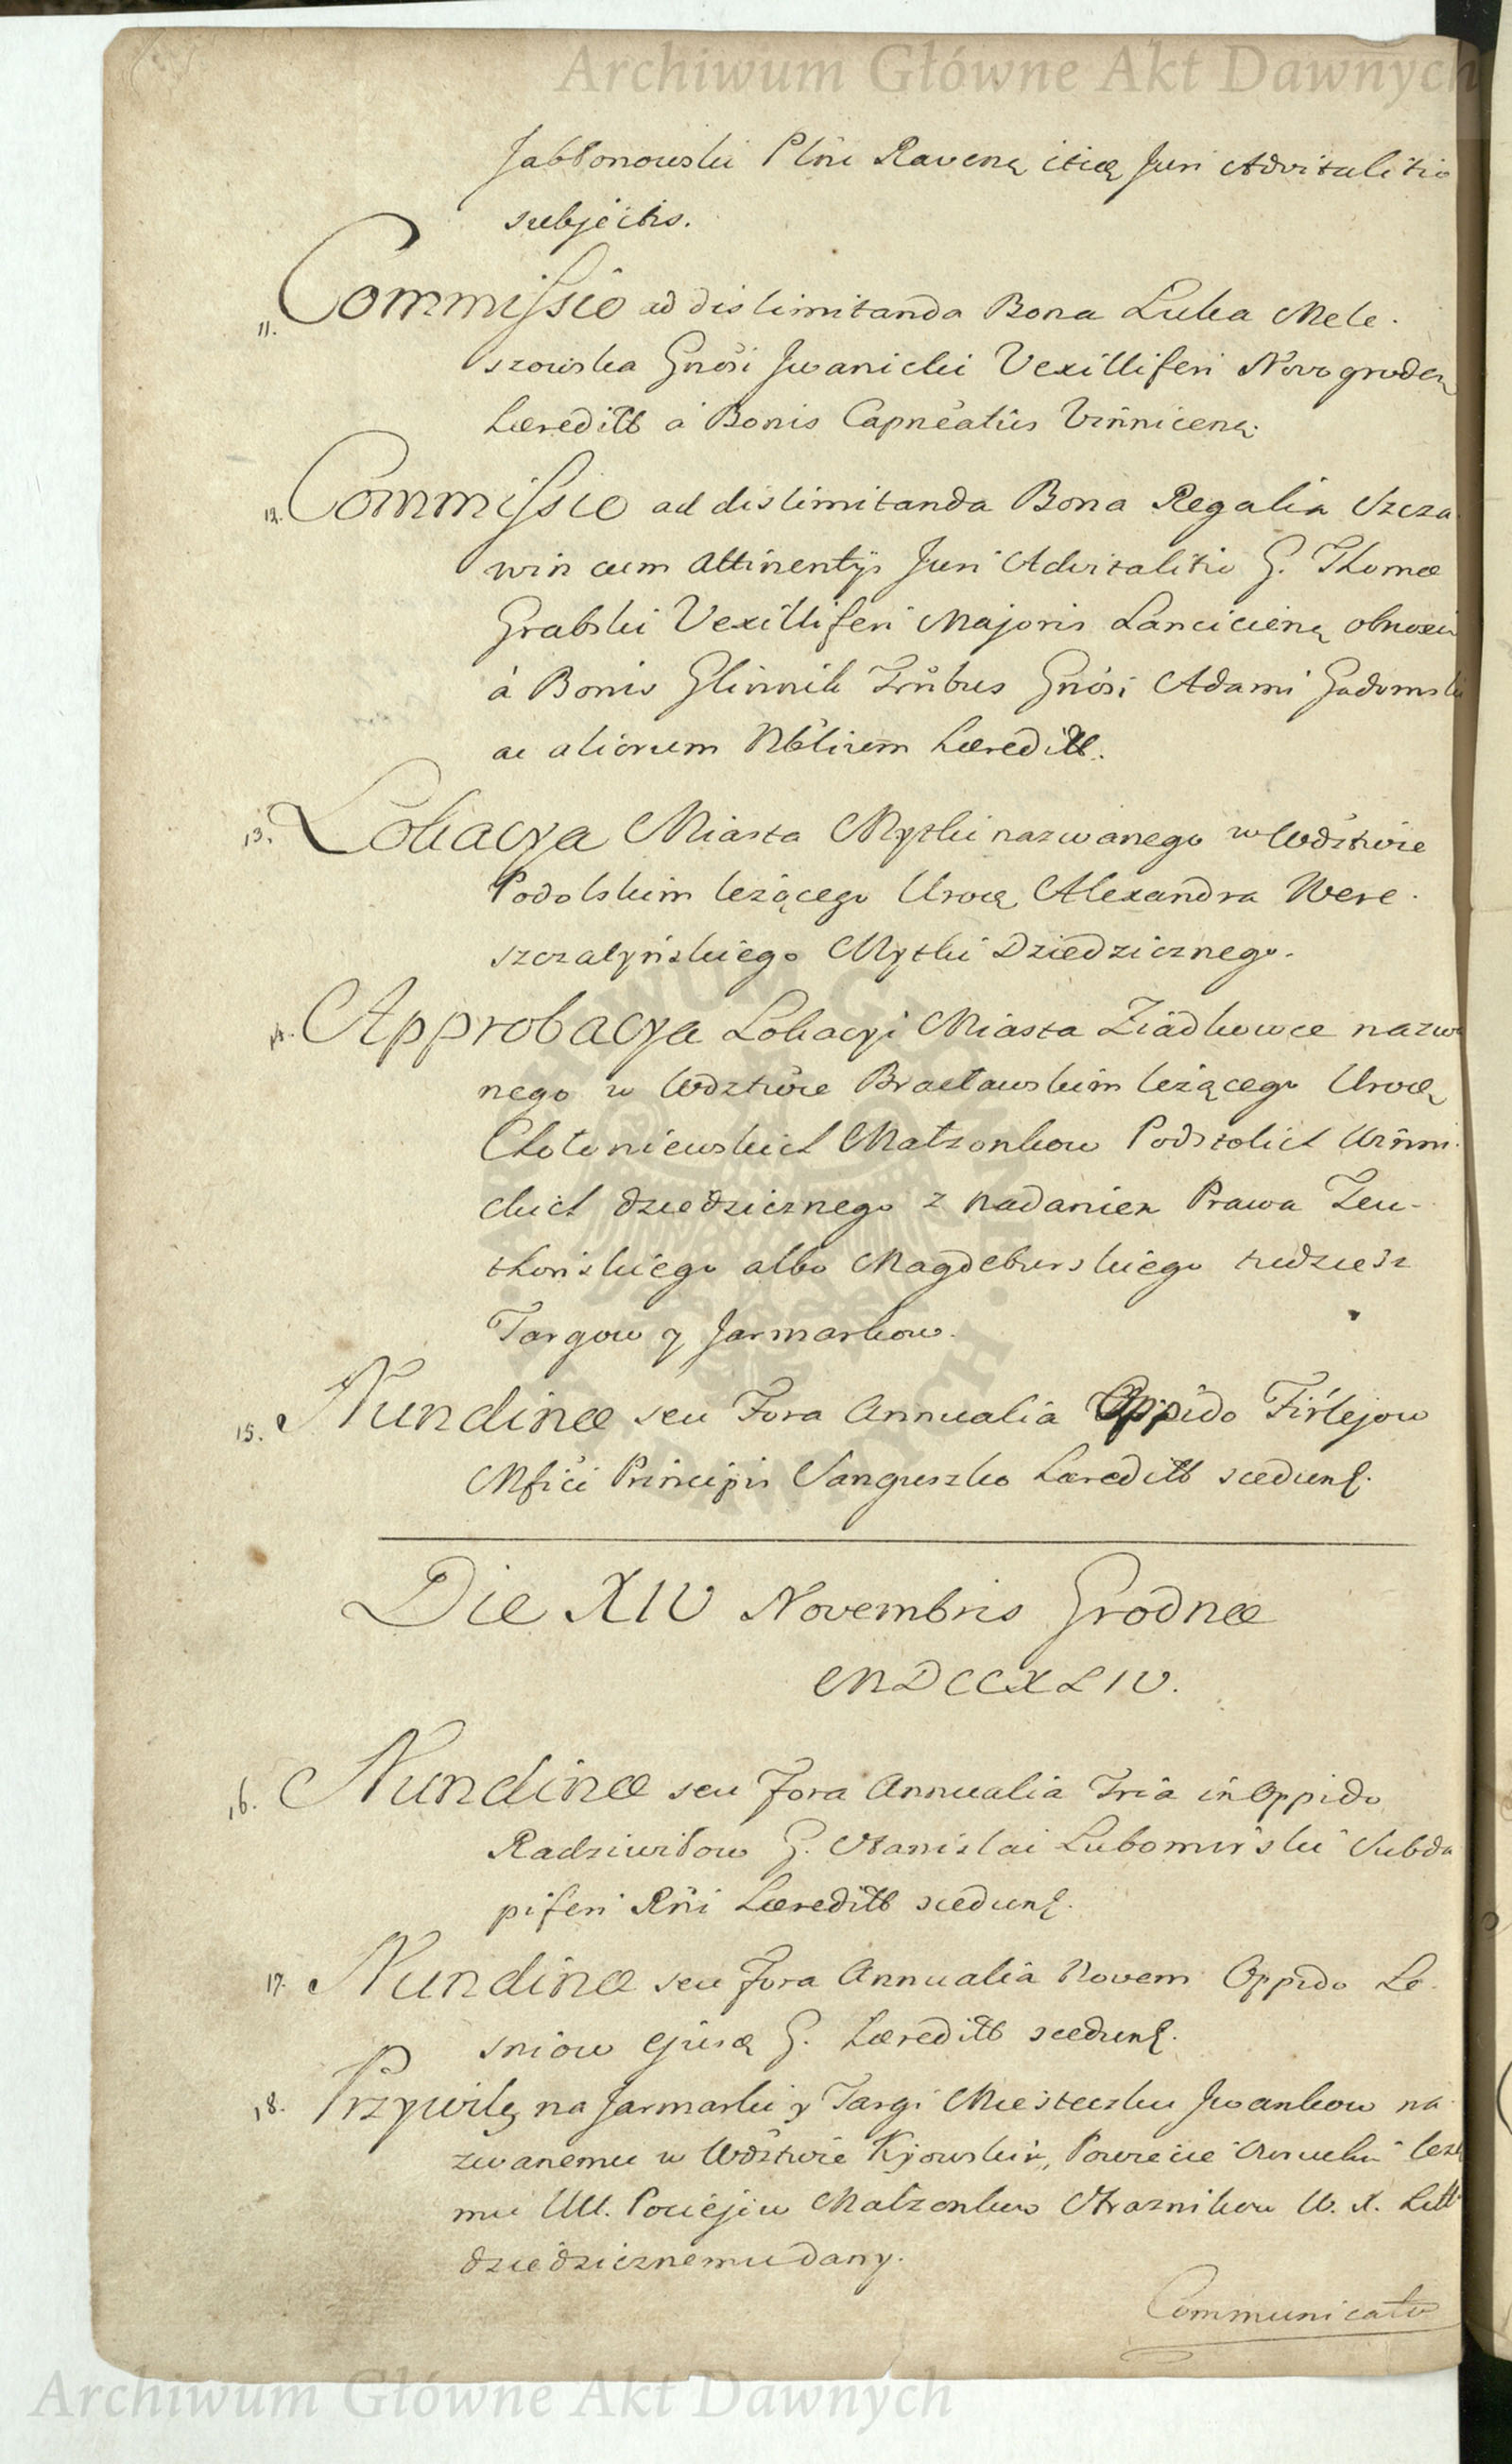 Archiwum Główne Akt Dawnych
Jabłonowski Ptni Ravenę itią Juri Advitalitio
subjectis.
11. Commissio ad dislimitanda Bona Luka Mele-
szowska Gnosi Jwanicki Vexilliferi Novogroden
hæreditt à Bonis Capneatus Vinnicenę.
12. Commissio ad dislimitanda Bona Regalia Szcza
win cum attinentijs Juri Advitalitio G. Thomæ
Grabski Vexilliferi Majoris Lancicienę obnoxia
à Bonis Glinnik Gnosi Adami Gadomski
ac aliorum Nblium hæreditt.
13. Lokacya Miasta Mytki nazwanego w Wdztwie
Podolskim leżącego Urocę Alexandra Were-
szczatyńskiego Mytki Dziedzicznego.
14. Approbacya Lokacyi Miasta Ziadkowce nazwa
nego w Wdztwie Bracławskim leżącego Urocę
Chołoniewskich Małżonkow Podstolich Winni-
ckich dziedzicznego z nadaniem Prawa Teu-
thońskiego albo Magdeburskiego tudziesz
Targow y Jarmarkow.
15. Nundinæ seu Fora Annualia Oppido Firlejow
Mfici Principis Sanguszko hæreditt
Die XIV Novembris Grodnæ
MDCCXLIV.
16. Nundinæ seu Fora Annualia Tria in Oppido
Radziwiłow G. Stanislai Lubomirski Subda
piferi Rni hæreditt
17. Nundinæ seu Fora Annualia Novem Oppido Le-
sniow ejusą G. hæreditt
18. Przywiley na Jarmarki y Targi Miesteczku Jwankow na
zwanemu w Wdztwie Kijowskim, Powiecie leżą
mu Ur. Pociejow Małżonkow Strażnikow W. X. Litt
dziedzicznemu dany.
Communicato
Archiwum Główne Akt Dawnych